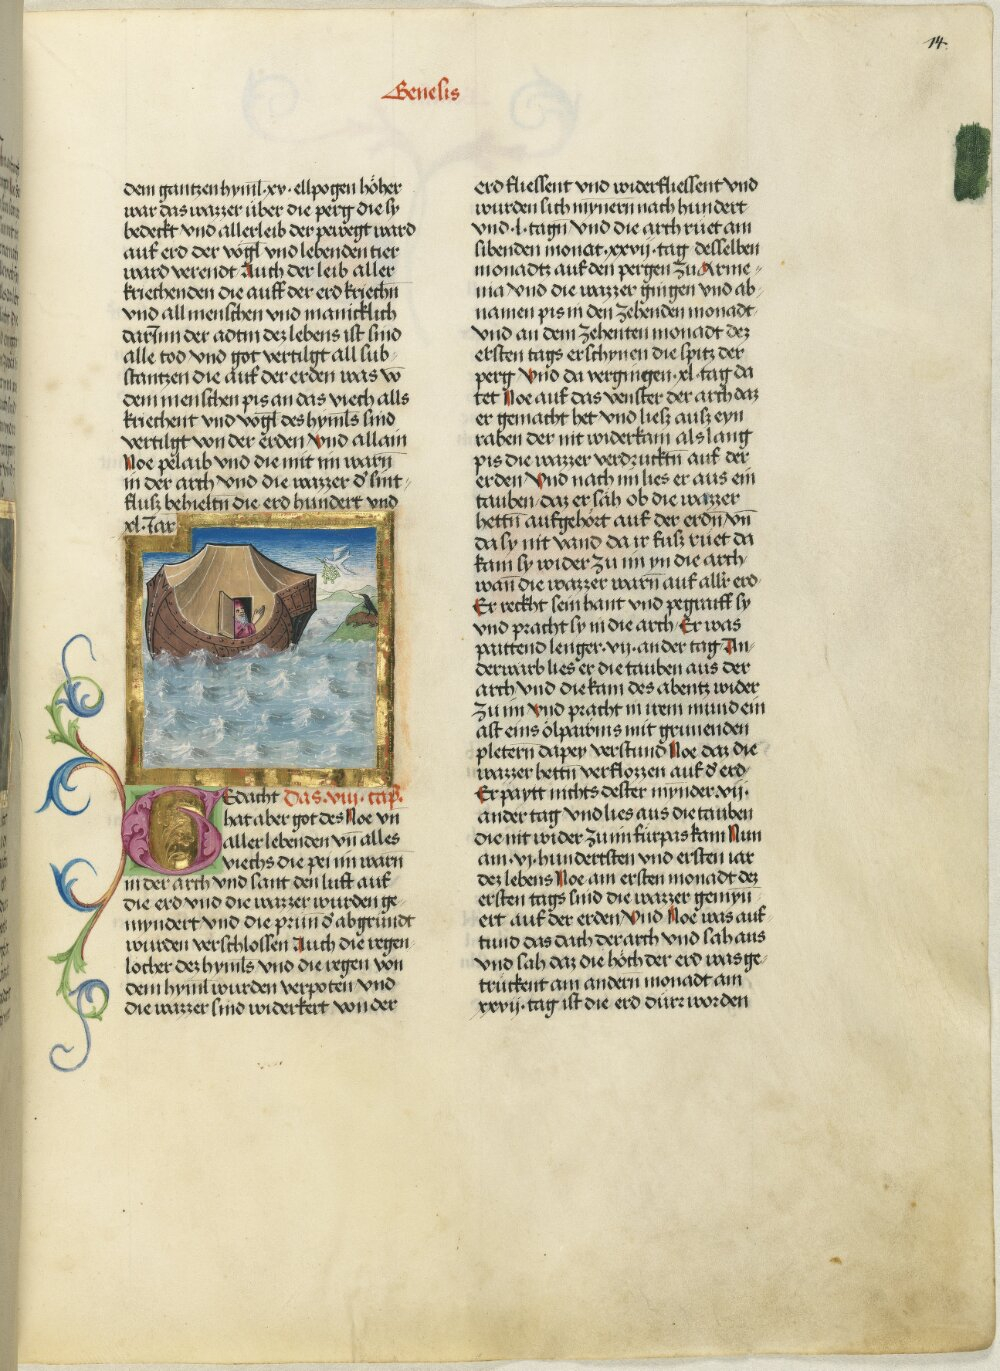 14
Genesis
dem gantzen hyml · xv · ellpogen höher
war das wazzer über die perg die sy
bedeckt vnd allerleib der pewegt ward
auf erd der vögl vnd lebenden tier
ward verendt Auch der leib aller
kriechenden die auff der erd kriechn̄
vnd all menschen vnd manicklich
darIn̄n der adtm dez lebens ist sind
alle tod vnd got vertilgt all sub-
stantzen die auf der erden was vō
dem menschen pis an das viech alls
kriechent vnd vögl des hymls sind
vertilgt von der erden Vnd allain
Noe pelaib vnd die mit im warn̄
in der arch vnd die wazzer d' sint-
flusz behieltn̄ die erd hundert vnd
xl · Iar
Edacht das · viij · cap̄.
hat aber got des Noe vn̄
aller lebenden vn̄ alles
viechs die pei im warn̄
in der arch vnd sant den luft auf
die erd vnd die wazzer wurden ge-
myndert vnd die prün d' abgründt
wurden verschlossen Auch die regen
locher dez hymls vnd die regen von
dem hyml wurden verpoten vnd
die wazzer sind widerkert von der
erd fliessent vnd widerfliessent vnd
wurden sich mynern̄ nach hundert
vnd · l · tagn̄ vnd die arch rüet am
sibenden monat · xxvij · tag desselben
monadtz auf den pergen zu Arme-
nia vnd die wazzer gingen vnd ab-
namen pis in den zehenden monadt
vnd an dem zehenten monadt dez
ersten tags erschynen die spitz der
perg Vnd da vergingen · xl · tag da
tet Noe auf das venster der arch daz
er gemacht het vnd liesz ausz eyn
raben der nit widerkam als lang
pis die wazzer verdrucktn̄ auf der
erden Vnd nach im lies er aus ein
tauben daz er säh ob die wazzer
hettn̄ aufgehört auf der erdn̄ vn̄
da sy nit vand da ir fusz rüet da
kam sy wider zu im yn die arch
wan̄ die wazzer warn̄ auf aller erd
Er reckht sein hant vnd pegraiff sy
vnd pracht sy in die arch Er was
paittend lenger · vij · ander tag An-
derwarb lies er die tauben aus der
arch vnd die kam des abentz wider
zu im Vnd pracht in irem mund ein
ast eins ölpawms mit grunenden
pletern̄ dapey verstund Noe daz die
wazzer hettn̄ verflozzen auf d' erd
Er paytt nichts dester mynder · vij ·
ander tag vnd lies aus die tauben
die nit wider zu im fürpas kam Nun
am · vj · hundertsten vnd ersten iar
dez lebens Noe am ersten monadt dez
ersten tags sind die wazzer gemyn̄-
ert auf der erden Vnd Noe was auf-
tund das dach der arch vnd sah aus
vnd sah daz die höch der erd was ge-
trückent am andern̄ monadt am
xxvij · tag ist die erd dürr worden